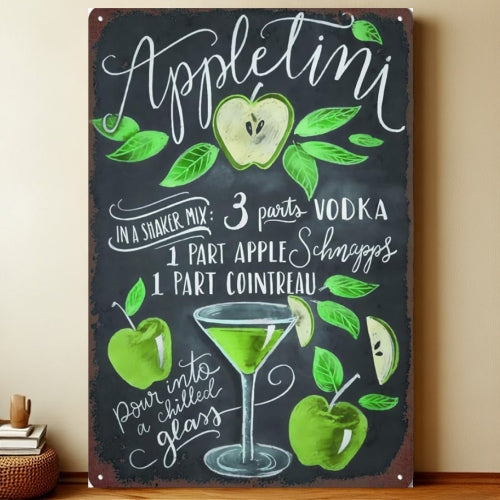 Appletini
IN A SHAKER MIX: 3 parts VODKA
1 PART APPLE Schnapps
1 PART COINTREAU
pour into
a chilled
glass